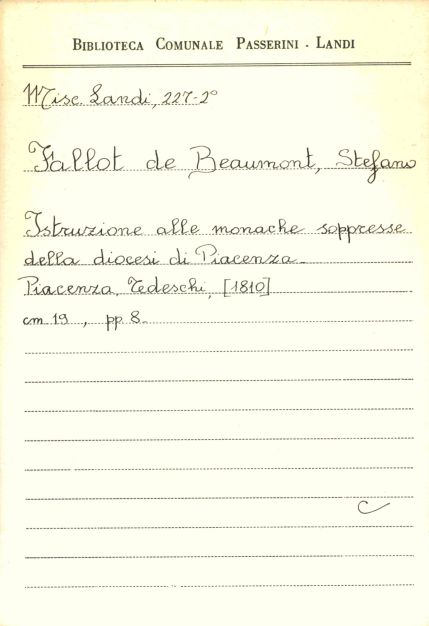 BIBLIOTECA COMUNALE PASSERINI - LANDI
Misc. Landi, 227-2°
Fallot de Beaumont, Stefano
Istruzione alle monache soppresse
della diocesi di Piacenza.
Piacenza, Tedeschi, [1810]
cm 19 , pp. 8.
C